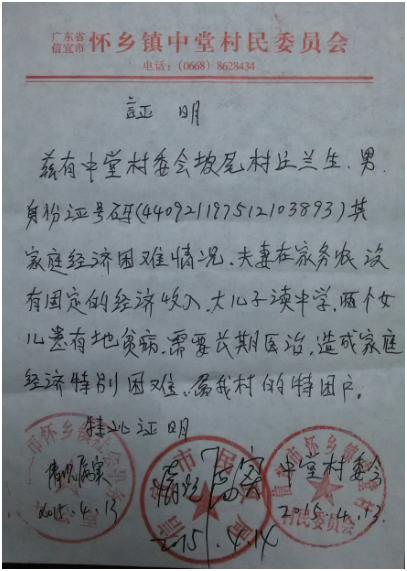 广东省
信宜市 怀乡镇中堂村民委员会
电话：(0668) 8628434
证明
兹有中堂村委会坡尾村丘兰生，男，
身份证号码(440921197512103893)其
家庭经济困难情况，夫妻在家务农，没
有固定的经济收入，大儿子读中学，两个女
儿患有地贫病，需要长期医治，造成家庭
经济特别困难，属我村的特困户。
特此证明
情况属实
2015.4.13
情况属实
2015.4.14
中堂村委会
2015.4.13.
村民委员会